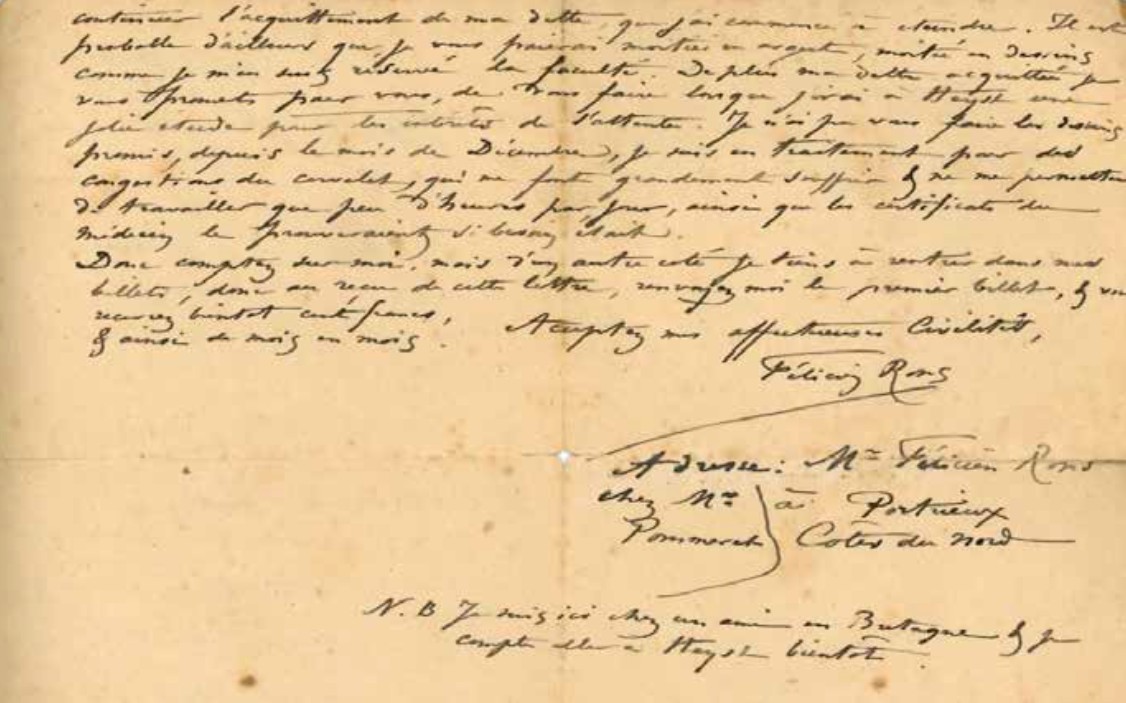 continuer l'acquittement de ma dette, que j'ai commencé à éteindre. Il est
probable d'ailleurs que je vous paierai moitié en argent, moitié en dessins
comme je m'en suis réservé la faculté. De plus ma dette acquittée je
vous promets pour vous, de vous faire lorsque j'irai à Heyst une
jolie étude pour les intérêts de l'attente. Je n'ai pu vous faire les dessins
promis, depuis le mois de Décembre, je suis en traitement pour des
congestions du cervelet, qui me font grandement souffrir & ne me permettent
de travailler que peu d'heures par jour, ainsi que les certificats du
médecin le prouveraient si besoin était.
Donc comptez sur moi, mais d'un autre coté je tiens à rentrer dans mes
billets, donc au reçu de cette lettre, renvoyez moi le premier billet, & vous
recevrez bientot cent francs,
& ainsi de mois en mois. Acceptez mes affectueuses Civilités,
Félicien Rops
Adresse: Mr Félicien Rops
chez Mr à Portrieux
Pommerat Côtes du Nord
N. B Je suis ici chez un ami en Bretagne & je
compte aller à Heyst bientôt.